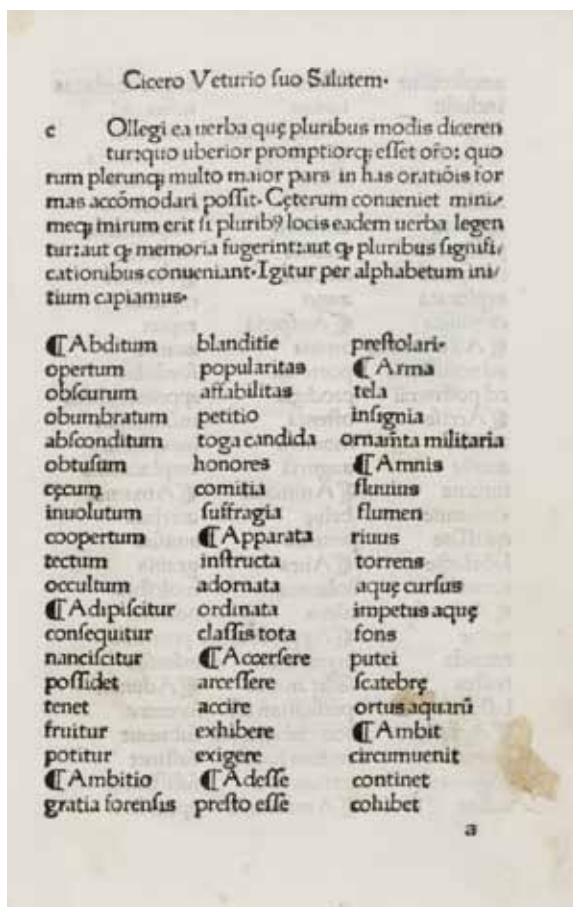 Cicero Veturio ſuo Salutem·
c Ollegi ea uerba quę pluribus modis diceren
tur:quo uberior promptiorqꝫ eſſet or̄o: quo
rum plerunqꝫ multo maior pars in has oratiōis for
mas accōmodari poſſit·Cęterum conueniet mini⸗
meqꝫ mirum erit ſi pluribꝰ locis eadem uerba legen
tur:aut ꝙ memoria fugerint:aut ꝙ pluribus ſignifi⸗
cationibus conueniant·Igitur per alphabetum ini⸗
tium capiamus·
¶Abditum
opertum
obſcurum
obumbratum
abſconditum
obtuſum
cęcum
inuolutum
coopertum
tectum
occultum
¶Adipiſcitur
conſequitur
nanciſcitur
poſſidet
tenet
fruitur
potitur
¶Ambitio
gratia forenſis
blanditie
popularitas
affabilitas
petitio
toga candida
honores
comitia
ſuffragia
¶Apparata
inſtructa
adornata
ordinata
claſſis tota
¶Accerſere
arceſſere
accire
exhibere
exigere
¶Adeſſe
preſto eſſe
preſtolari·
¶Arma
tela
inſignia
ornamta militaria
¶Amnis
fluuius
flumen
riuus
torrens
aquę curſus
impetus aquę
fons
putei
ſcatebrę
ortus aquarū
¶Ambit
circumuenit
continet
cohibet
a